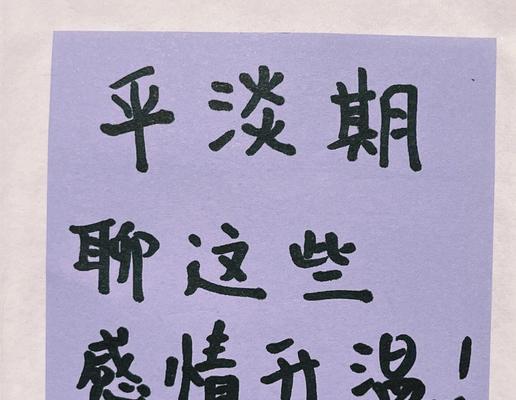 平淡期
聊这些
感情升温!